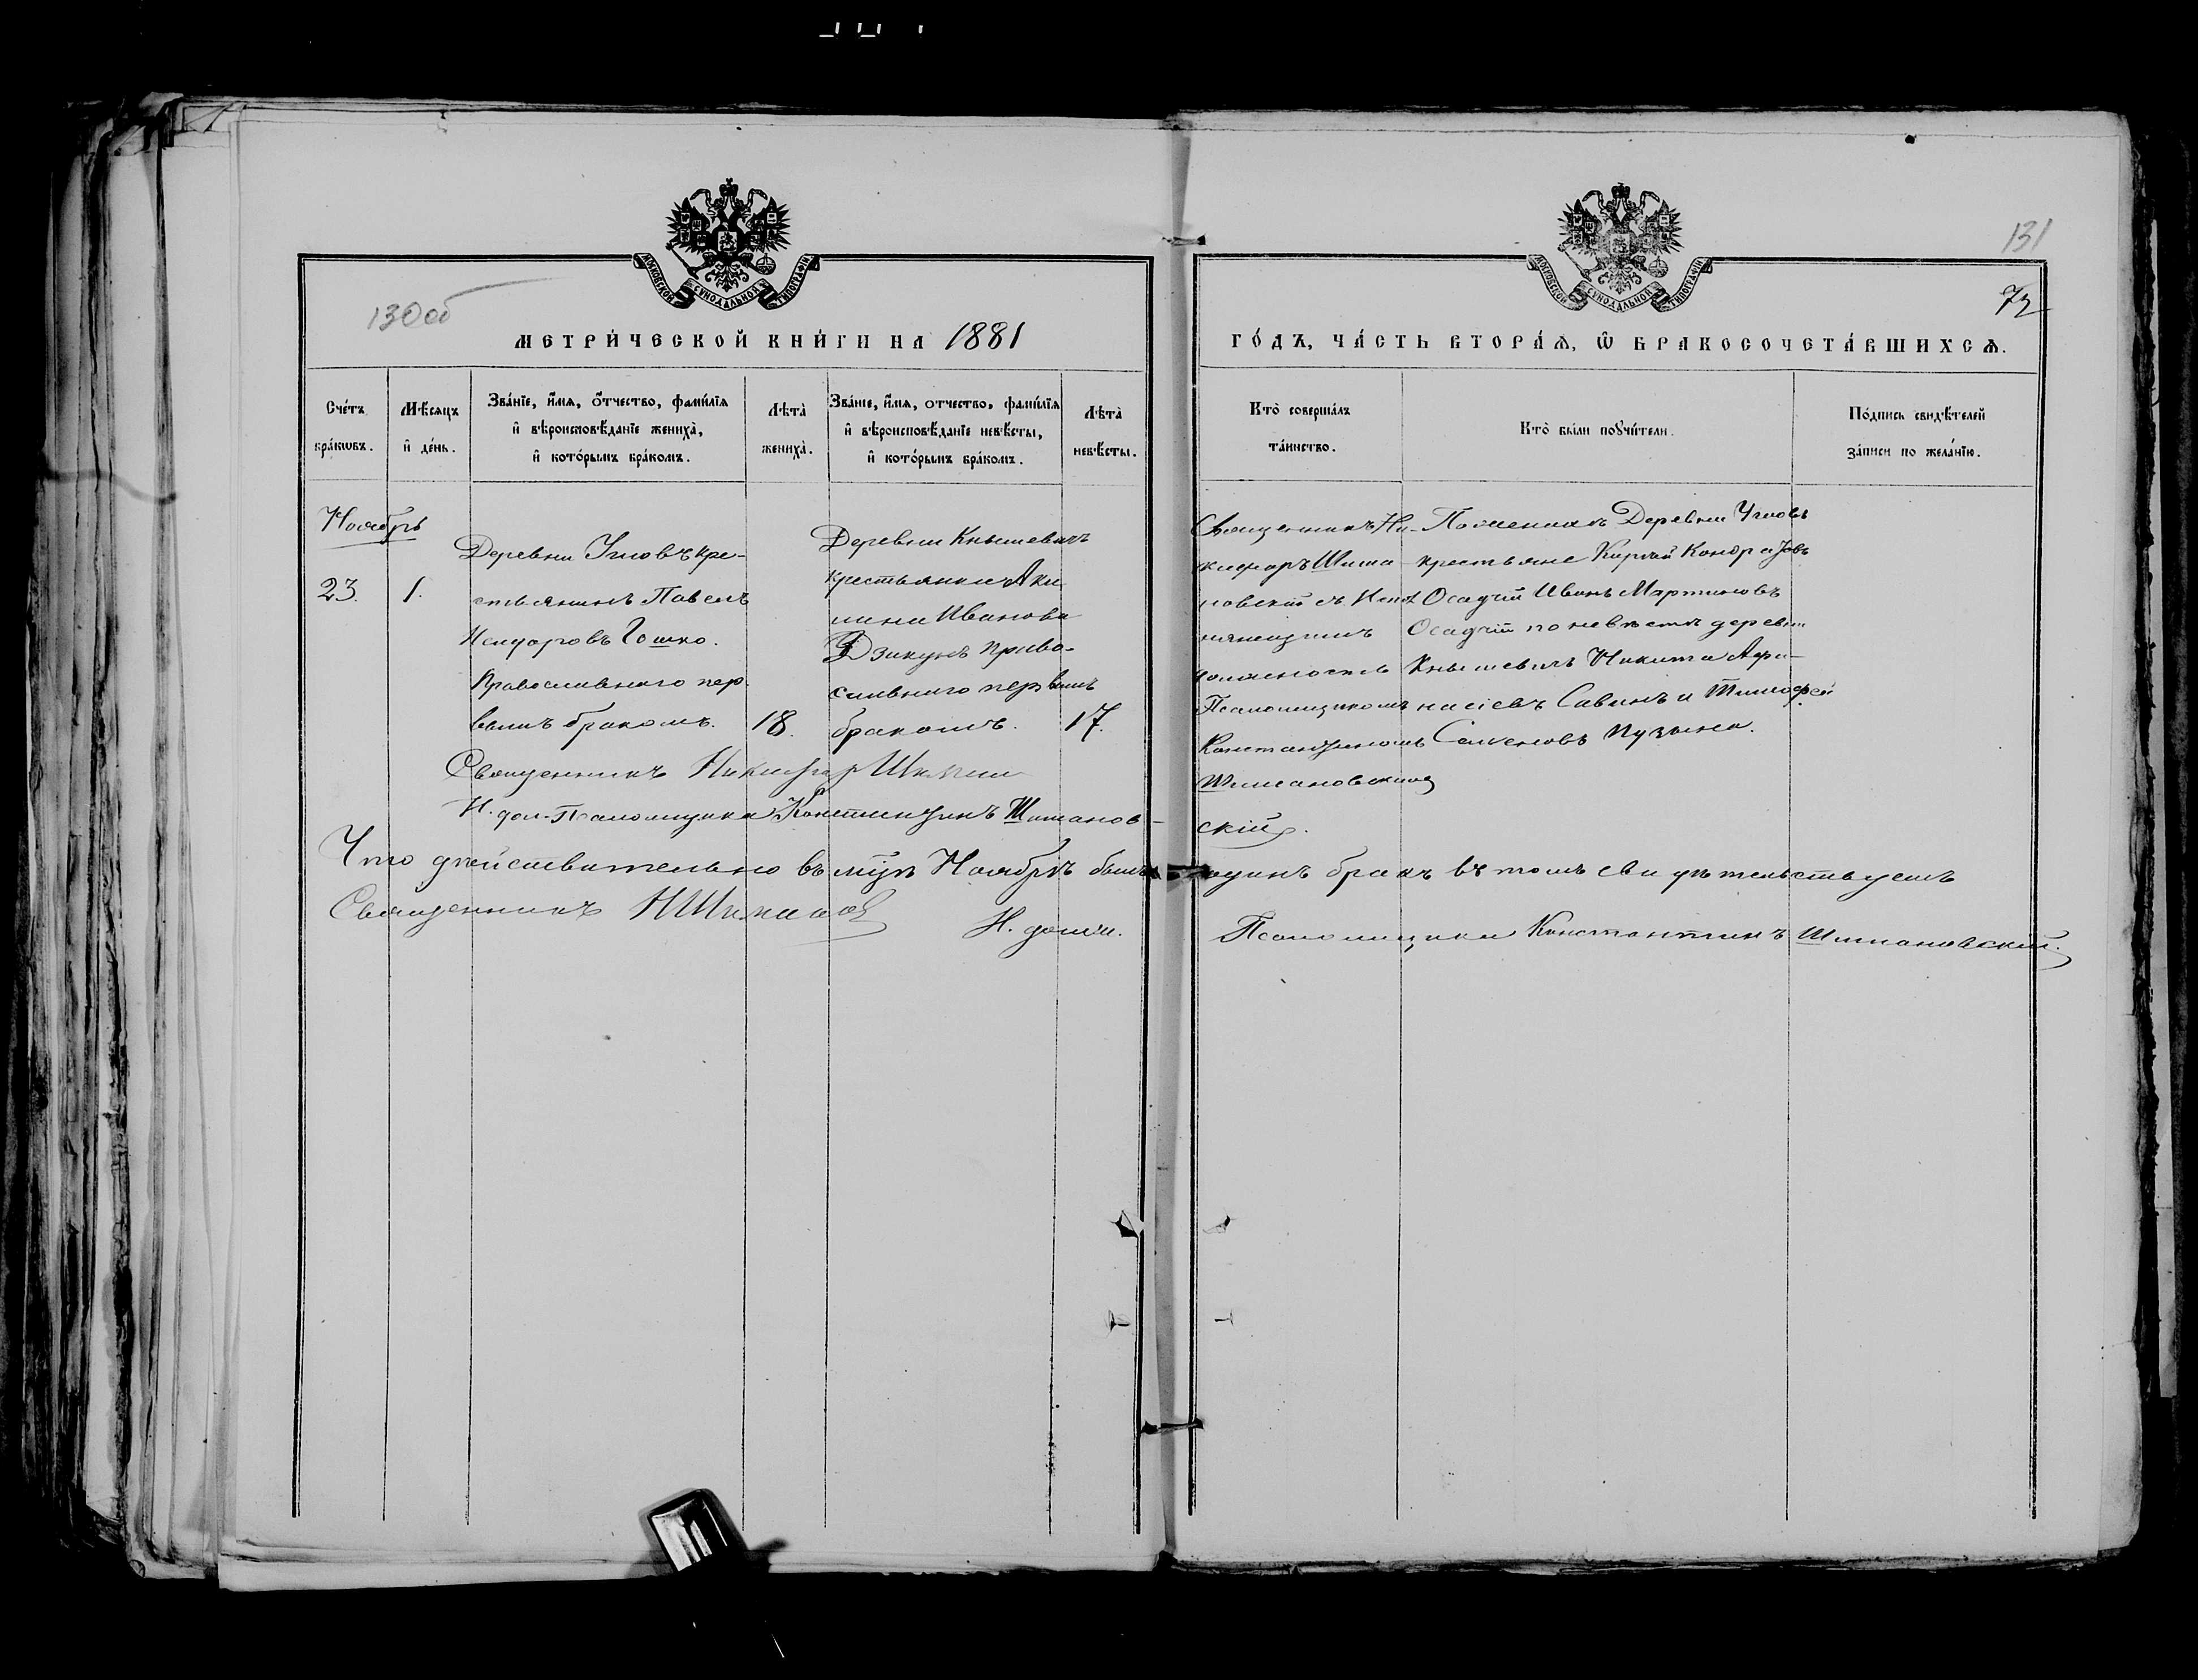 131
130об
72
МОСКОВСКОЙ СѴНОДАЛЬНОЙ ТИПОГРАФІИ
МОСКОВСКОЙ СѴНОДАЛЬНОЙ ТИПОГРАФІИ
МЕТРИ́ЧЕСКОЙ КНИ́ГИ НА 1881
ГО́ДЪ, ЧА́СТЬ ВТОРА́Ѧ, Ѽ БРАКОСОЧЕТА́ВШИХСѦ.
Сче́тъ
бра́кѡвъ.
Мѣ́сѧцъ
и҆ де́нь.
Зва́нїе, и҆́мѧ, о҆́тчество, фами́лїѧ
и҆ вѣроисповѣ́данїе жениха̀,
и҆ кото́рымъ бра́комъ.
Лѣта̀
жениха̀.
Зва́нїе, и҆́мѧ, отчество, фами́лїѧ
и҆ вѣроисповѣ́данїе невѣ́сты,
и҆ кото́рымъ бра́комъ.
Лѣта̀
невѣ́сты.
Кто̀ соверша́лъ
та́инство.
Кто̀ бы́ли поꙋчи́тели.
По́дпись свидѣ́телей
за́писи по жела́нїю.
Ноябрь
23.
1.
Деревни Угновъ кре-
стьянинъ Павелъ
Гошко.
Православнаго пер-
вымъ бракомъ.
18.
Деревни Кнышевичъ
крестьянка Аки
лина Иванова
Дзикунъ Право-
славнаго первымъ
бракомъ.
17.
Священникъ Ни-
кифоръ Шима
новскій съ
должность
Псаломщикомъ
Константиномъ
Шимановскимъ
По женихѣ Деревни Угновъ
крестьяне Кирилъ Кондратовъ
Осадчій Иванъ Мартиновъ
Осадчій по невѣстѣ деревни
Кнышевичъ Никита Афа-
насіевъ Савинъ и Тимофей
Семеновъ Пузына.
Священникъ Никифоръ
И. дол. Псаломщика Константинъ Шиманов-
скій.
Что дѣйствительно въ мцѣ Ноябрѣ былъ одинъ бракъ въ томъ свидѣтельствуемъ
Священникъ
И. должн. Псаломщика Константинъ Шимановскій.